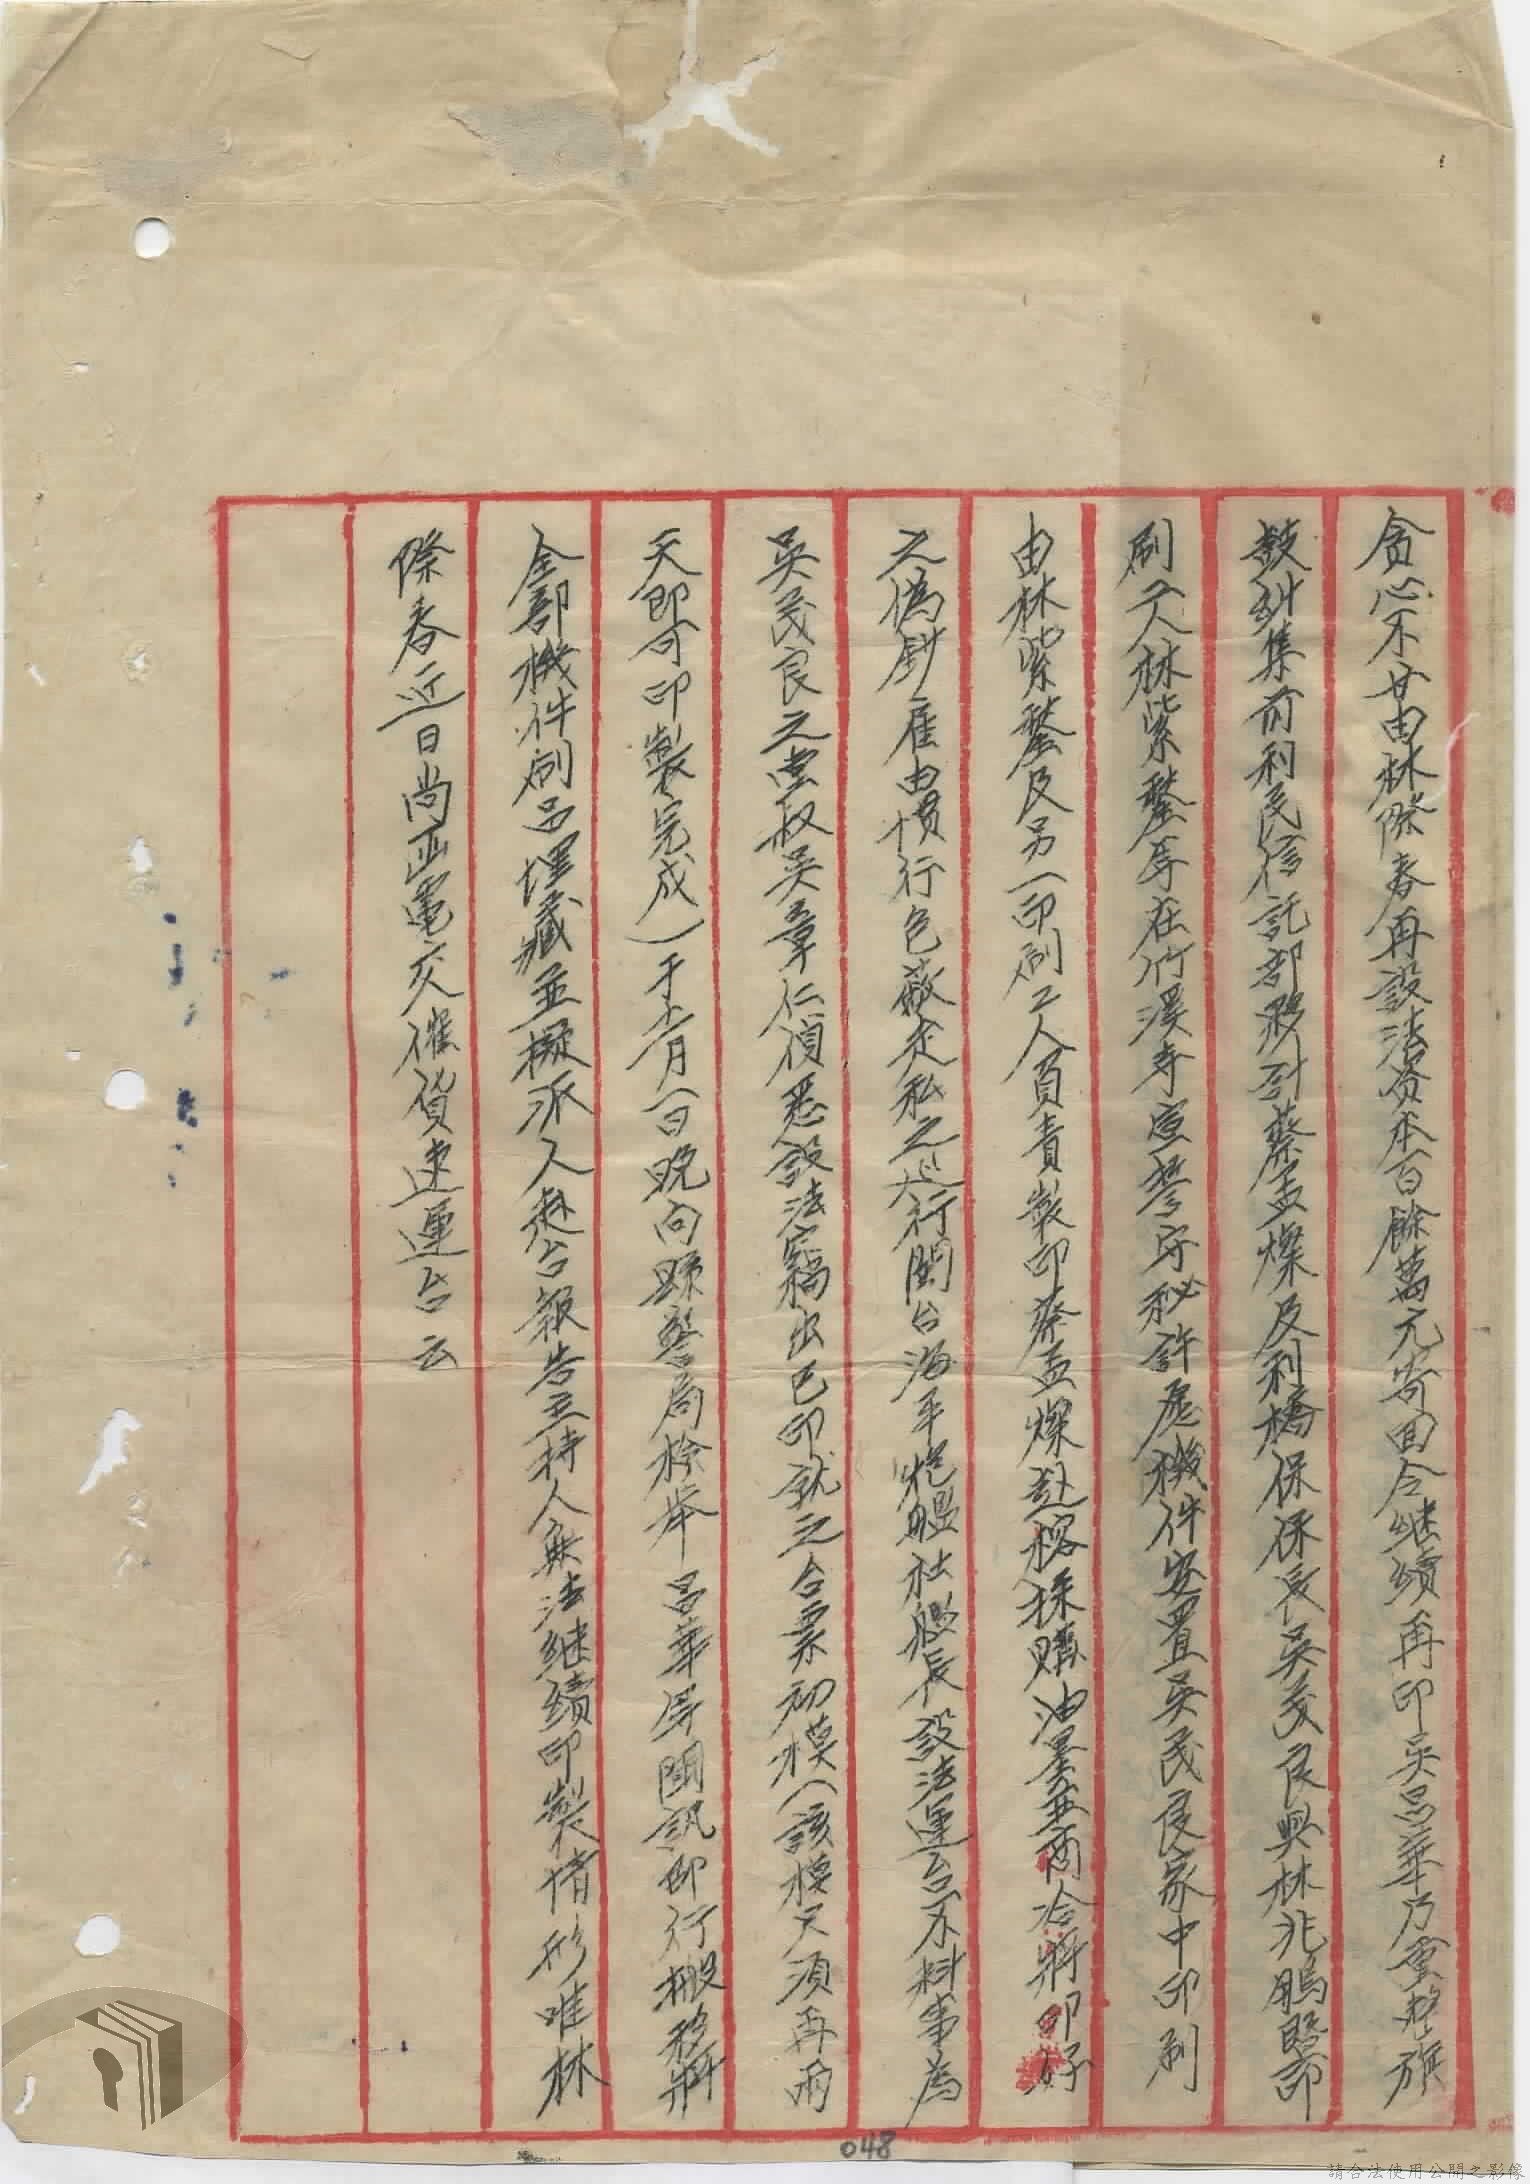 貪心不甘由林際春再設法資本百餘萬元寄回令继續再印吳昌華乃重整旗
鼓糾集前利民信託部夥計蔡孟燦及利橋保保長吳茂良與林兆鵬暨印
刷工人林紫鏊等在竹溪寺宣誓守秘許處機件安置吳茂良家中印刷
由林紫鏊及另一印刷工人負責製印蔡孟燦赴榕採購油墨並商洽將印好
之偽鈔雇由慣行包蔽走私之航行閩台海平炮艦社艦長設法運台不料事為
吳茂良之堂叔吳章仁偵悉設法竊出已印就之台票初模(該模只須再兩
天即可印製完成)于上月一日晚向縣警局檢举 昌華等聞訊即行搬移將
全部機件刷另埋藏並擬派人赴台報告主持人無法继續印製情形唯林
際春近日尚函電交催貨速運台云
048
請合法使用公開之影像